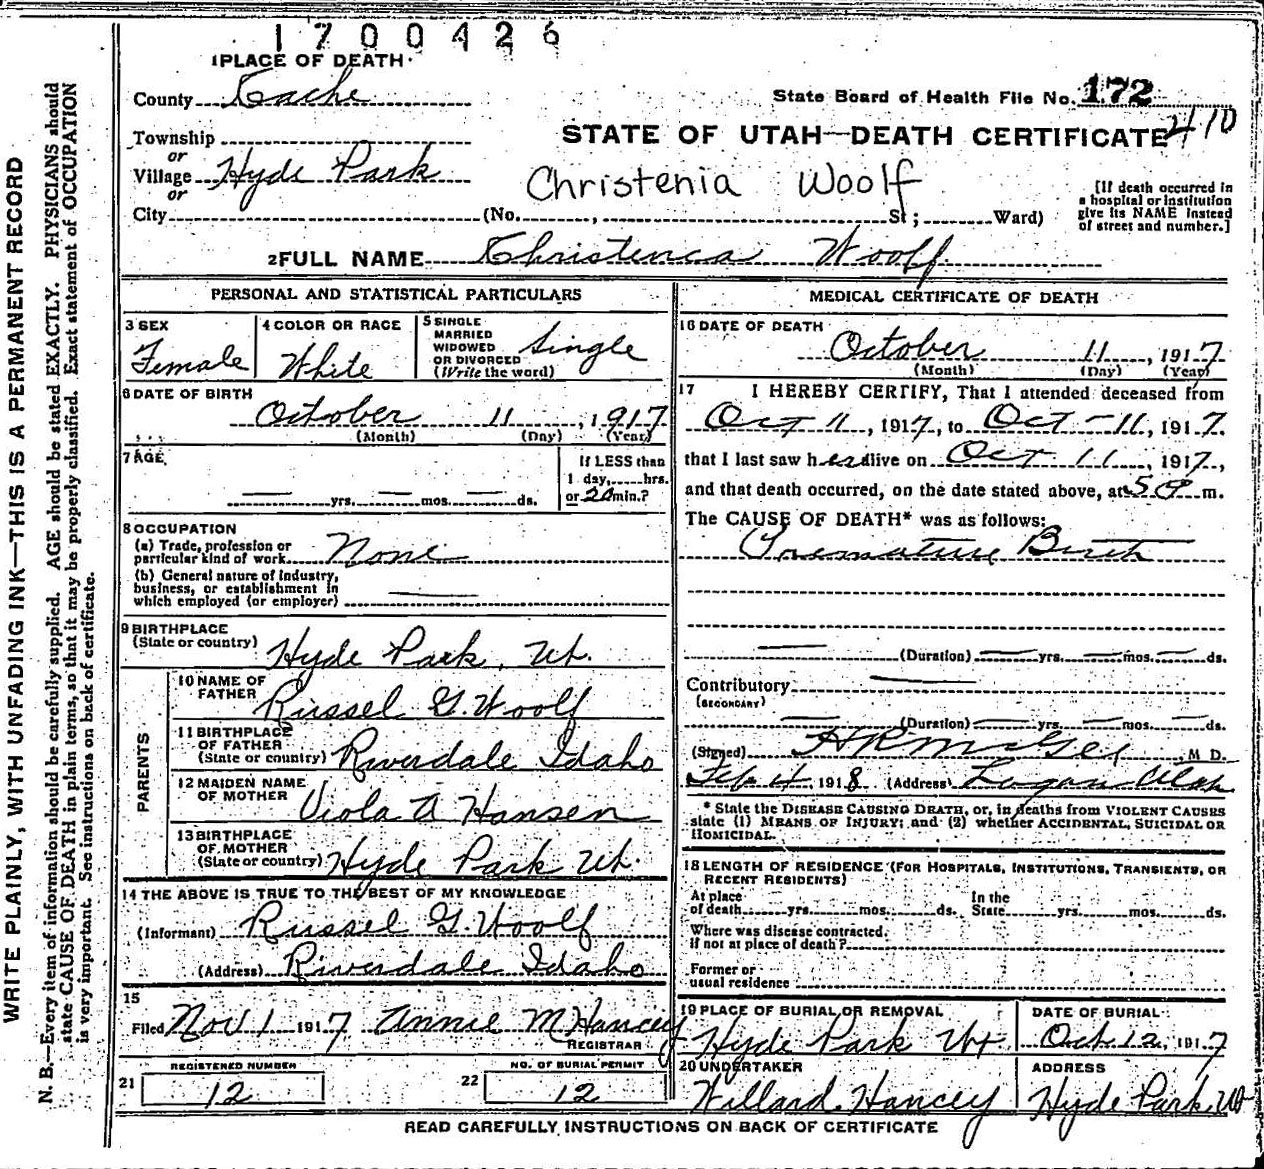 1700426
1 PLACE OF DEATH
County Cache
State Board of Health File No. 172
410
Township
STATE OF UTAH—DEATH CERTIFICATE
or
Village Hyde Park
or
Christenia Woolf
[If death occurred in
a hospital or institution
give its NAME instead
of street and number.]
City (No. , St ; Ward)
2 FULL NAME Christenca Woolf
PERSONAL AND STATISTICAL PARTICULARS
3 SEX
Female
4 COLOR OR RACE
White
5 SINGLE
MARRIED
WIDOWED
OR DIVORCED
(Write the word)
Single
6 DATE OF BIRTH
October 11, 1917
(Month) (Day) (Year)
7 AGE
— yrs. — mos. — ds.
If LESS than
1 day, hrs.
or 20 min.?
8 OCCUPATION
(a) Trade, profession or
particular kind of work None
(b) General nature of industry,
business, or establishment in
which employed (or employer) —
9 BIRTHPLACE
(State or country) Hyde Park, Ut.
PARENTS
10 NAME OF
FATHER Russel G. Woolf
11 BIRTHPLACE
OF FATHER
(State or country) Riverdale Idaho
12 MAIDEN NAME
OF MOTHER Viola A Hansen
13 BIRTHPLACE
OF MOTHER
(State or country) Hyde Park Ut.
14 THE ABOVE IS TRUE TO THE BEST OF MY KNOWLEDGE
(Informant) Russel G. Woolf
(Address) Riverdale Idaho
15
Filed Nov 1 1917 Annie M Hancey
REGISTRAR
REGISTERED NUMBER
21 12
NO. OF BURIAL PERMIT
22 12
MEDICAL CERTIFICATE OF DEATH
16 DATE OF DEATH
October 11, 1917
(Month) (Day) (Year)
17 I HEREBY CERTIFY, That I attended deceased from
Oct 11, 1917, to Oct - 11, 1917.
that I last saw her alive on Oct 11, 1917,
and that death occurred, on the date stated above, at 5 m.
The CAUSE OF DEATH* was as follows:
Premature Birth
— (Duration) — yrs. — mos. — ds.
Contributory —
(SECONDARY)
— (Duration) — yrs. — mos. — ds.
(Signed) M D.
Feb 4, 1918 (Address) Logan Utah
* State the DISEASE CAUSING DEATH, or, in deaths from VIOLENT CAUSES
state (1) MEANS OF INJURY; and (2) whether ACCIDENTAL, SUICIDAL OR
HOMICIDAL.
18 LENGTH OF RESIDENCE (FOR HOSPITALS, INSTITUTIONS, TRANSIENTS, OR
RECENT RESIDENTS)
At place
of death yrs. mos. ds.
In the
State yrs. mos. ds.
Where was disease contracted,
if not at place of death?
Former or
usual residence
19 PLACE OF BURIAL OR REMOVAL
Hyde Park Ut
DATE OF BURIAL
Oct. 12, 1917
20 UNDERTAKER
Willard Hancey
ADDRESS
Hyde Park, Ut
READ CAREFULLY INSTRUCTIONS ON BACK OF CERTIFICATE
WRITE PLAINLY, WITH UNFADING INK—THIS IS A PERMANENT RECORD
N. B.—Every item of information should be carefully supplied. AGE should be stated EXACTLY. PHYSICIANS should
state CAUSE OF DEATH in plain terms, so that it may be properly classified. Exact statement of OCCUPATION
is very important. See instructions on back of certificate.